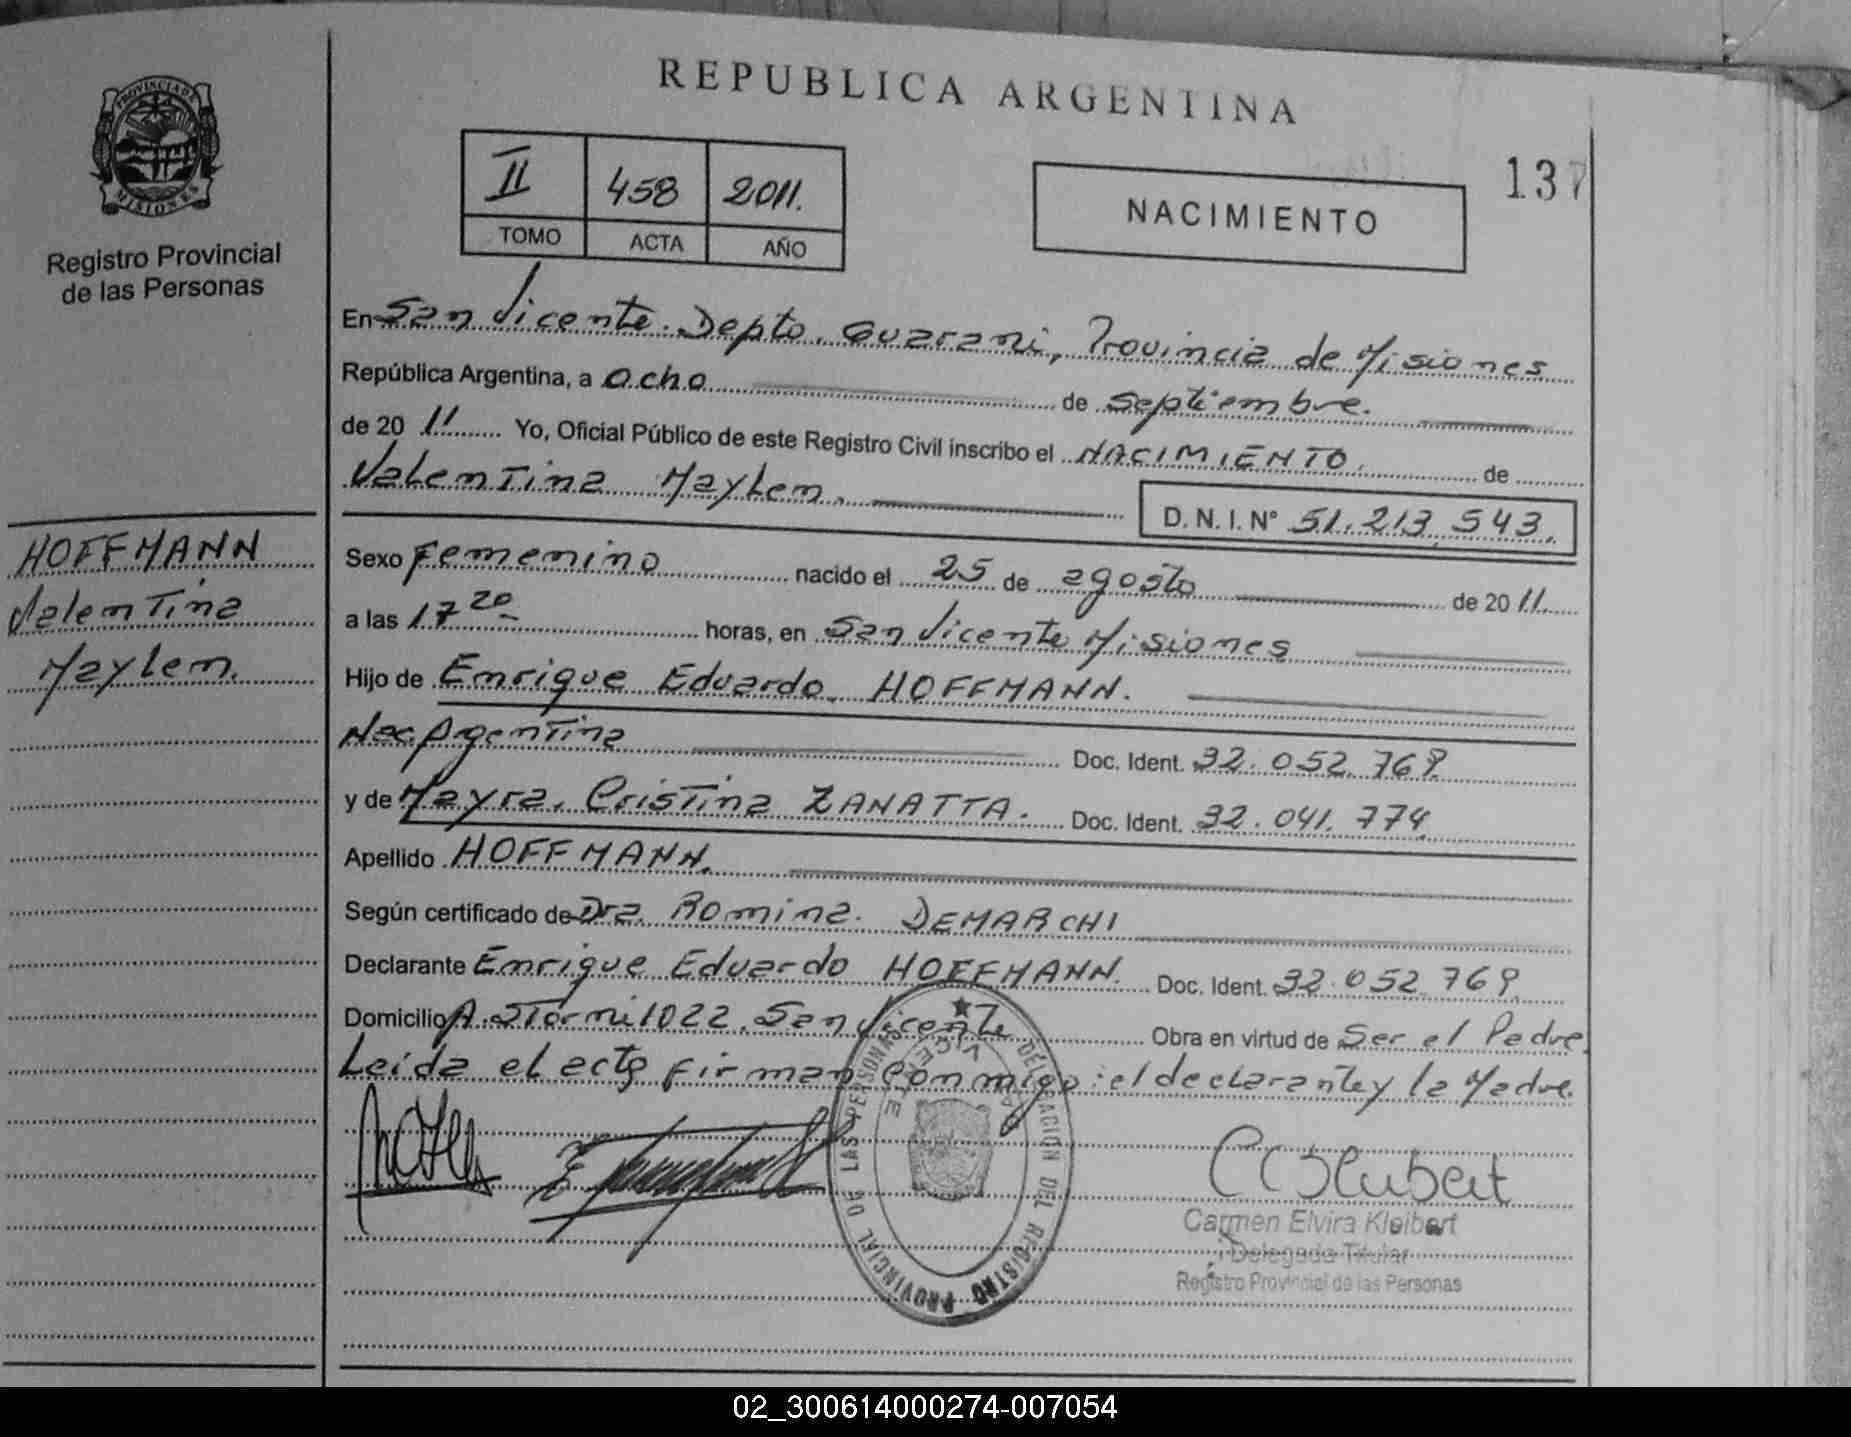 REPUBLICA ARGENTINA
PROVINCIA DE
MISIONES
Registro Provincial
de las Personas
II 458 2011.
TOMO ACTA AÑO
NACIMIENTO
137
En San Vicente. Depto. Guarani, Provincia de Misiones
República Argentina, a ocho de Septiembre.
de 20 11 Yo, Oficial Público de este Registro Civil inscribo el NACIMIENTO. de
Valentina Maylen.
D. N. I. N° 51.213.543.
HOFFMANN
Valentina
Maylen.
Sexo Femenino nacido el 25 de agosto de 20 11
a las 17 20 horas, en San Vicente Misiones
Hijo de Enrique Eduardo HOFFMANN.
Nac. Argentina Doc. Ident. 32.052.769.
y de Mayra Cristina ZANATTA. Doc. Ident. 32.041.774.
Apellido HOFFMANN.
Según certificado de Dra. Romina DEMARCHI
Declarante Enrique Eduardo HOFFMANN. Doc. Ident. 32.052.769.
Domicilio A. Storni 1022. San Vicente Obra en virtud de Ser el Padre.
Leída el acta firman conmigo: el declarante y la Madre.
DELEGACION DEL REGISTRO PROVINCIAL DE LAS PERSONAS
VICENTE
Carmen Elvira Kleibert
Delegada Titular
Registro Provincial de las Personas
02_300614000274-007054